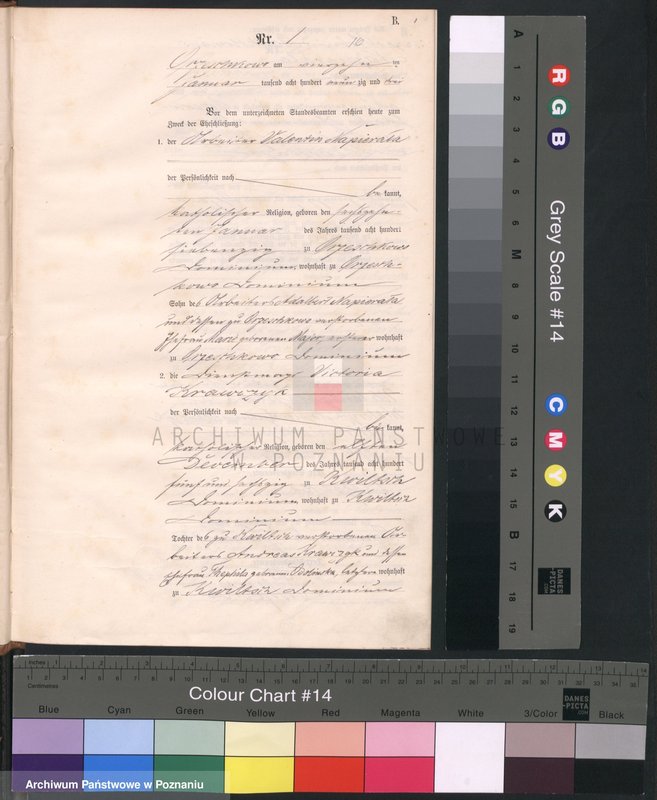 B.
Nr. 1
Orzeschkowo am vierzehnten
Januar tausend acht hundert neunzig und drei
Vor dem unterzeichneten Standesbeamten erschien heute zum
Zweck der Eheschließung:
1. der Arbeiter Valentin Napierala
der Persönlichkeit nach
be kannt,
katholischer Religion, geboren den sechszehn-
ten Januar des Jahres tausend acht hundert
siebenzig zu Orzeschkowo
Dominium, wohnhaft zu Orzesch-
kowo Dominium
Sohn des Arbeiters Adalbert Napierala
und dessen zu Orzeschkowo verstorbenen
Ehefrau Marie geborenen Major, ersterer wohnhaft
zu Orzeschkowo Dominium
2. die Dienstmagd Victoria
Krawczyk
der Persönlichkeit nach
be kannt,
katholischer Religion, geboren den elften
Dezember des Jahres tausend acht hundert
fünf und sechszig zu Kwiltsch
Dominium, wohnhaft zu Kwiltsch
Dominium
Tochter des zu Kwiltsch verstorbenen Ar-
beiters Andreas Krawczyk und dessen
Ehefrau geborenen letztere wohnhaft
zu Kwiltsch Dominium
ARCHIWUM PAŃSTWOWE
W POZNANIU
A 1 2 3 4 5 6 M 8 9 10 11 12 13 14 15 B 17 18 19
R G B
Grey Scale #14
C M Y K
DANES
-PICTA
.COM
Inches
Centimetres
Colour Chart #14
DANES
-PICTA
.COM
Blue Cyan Green Yellow Red Magenta White 3/Color Black
Archiwum Państwowe w Poznaniu